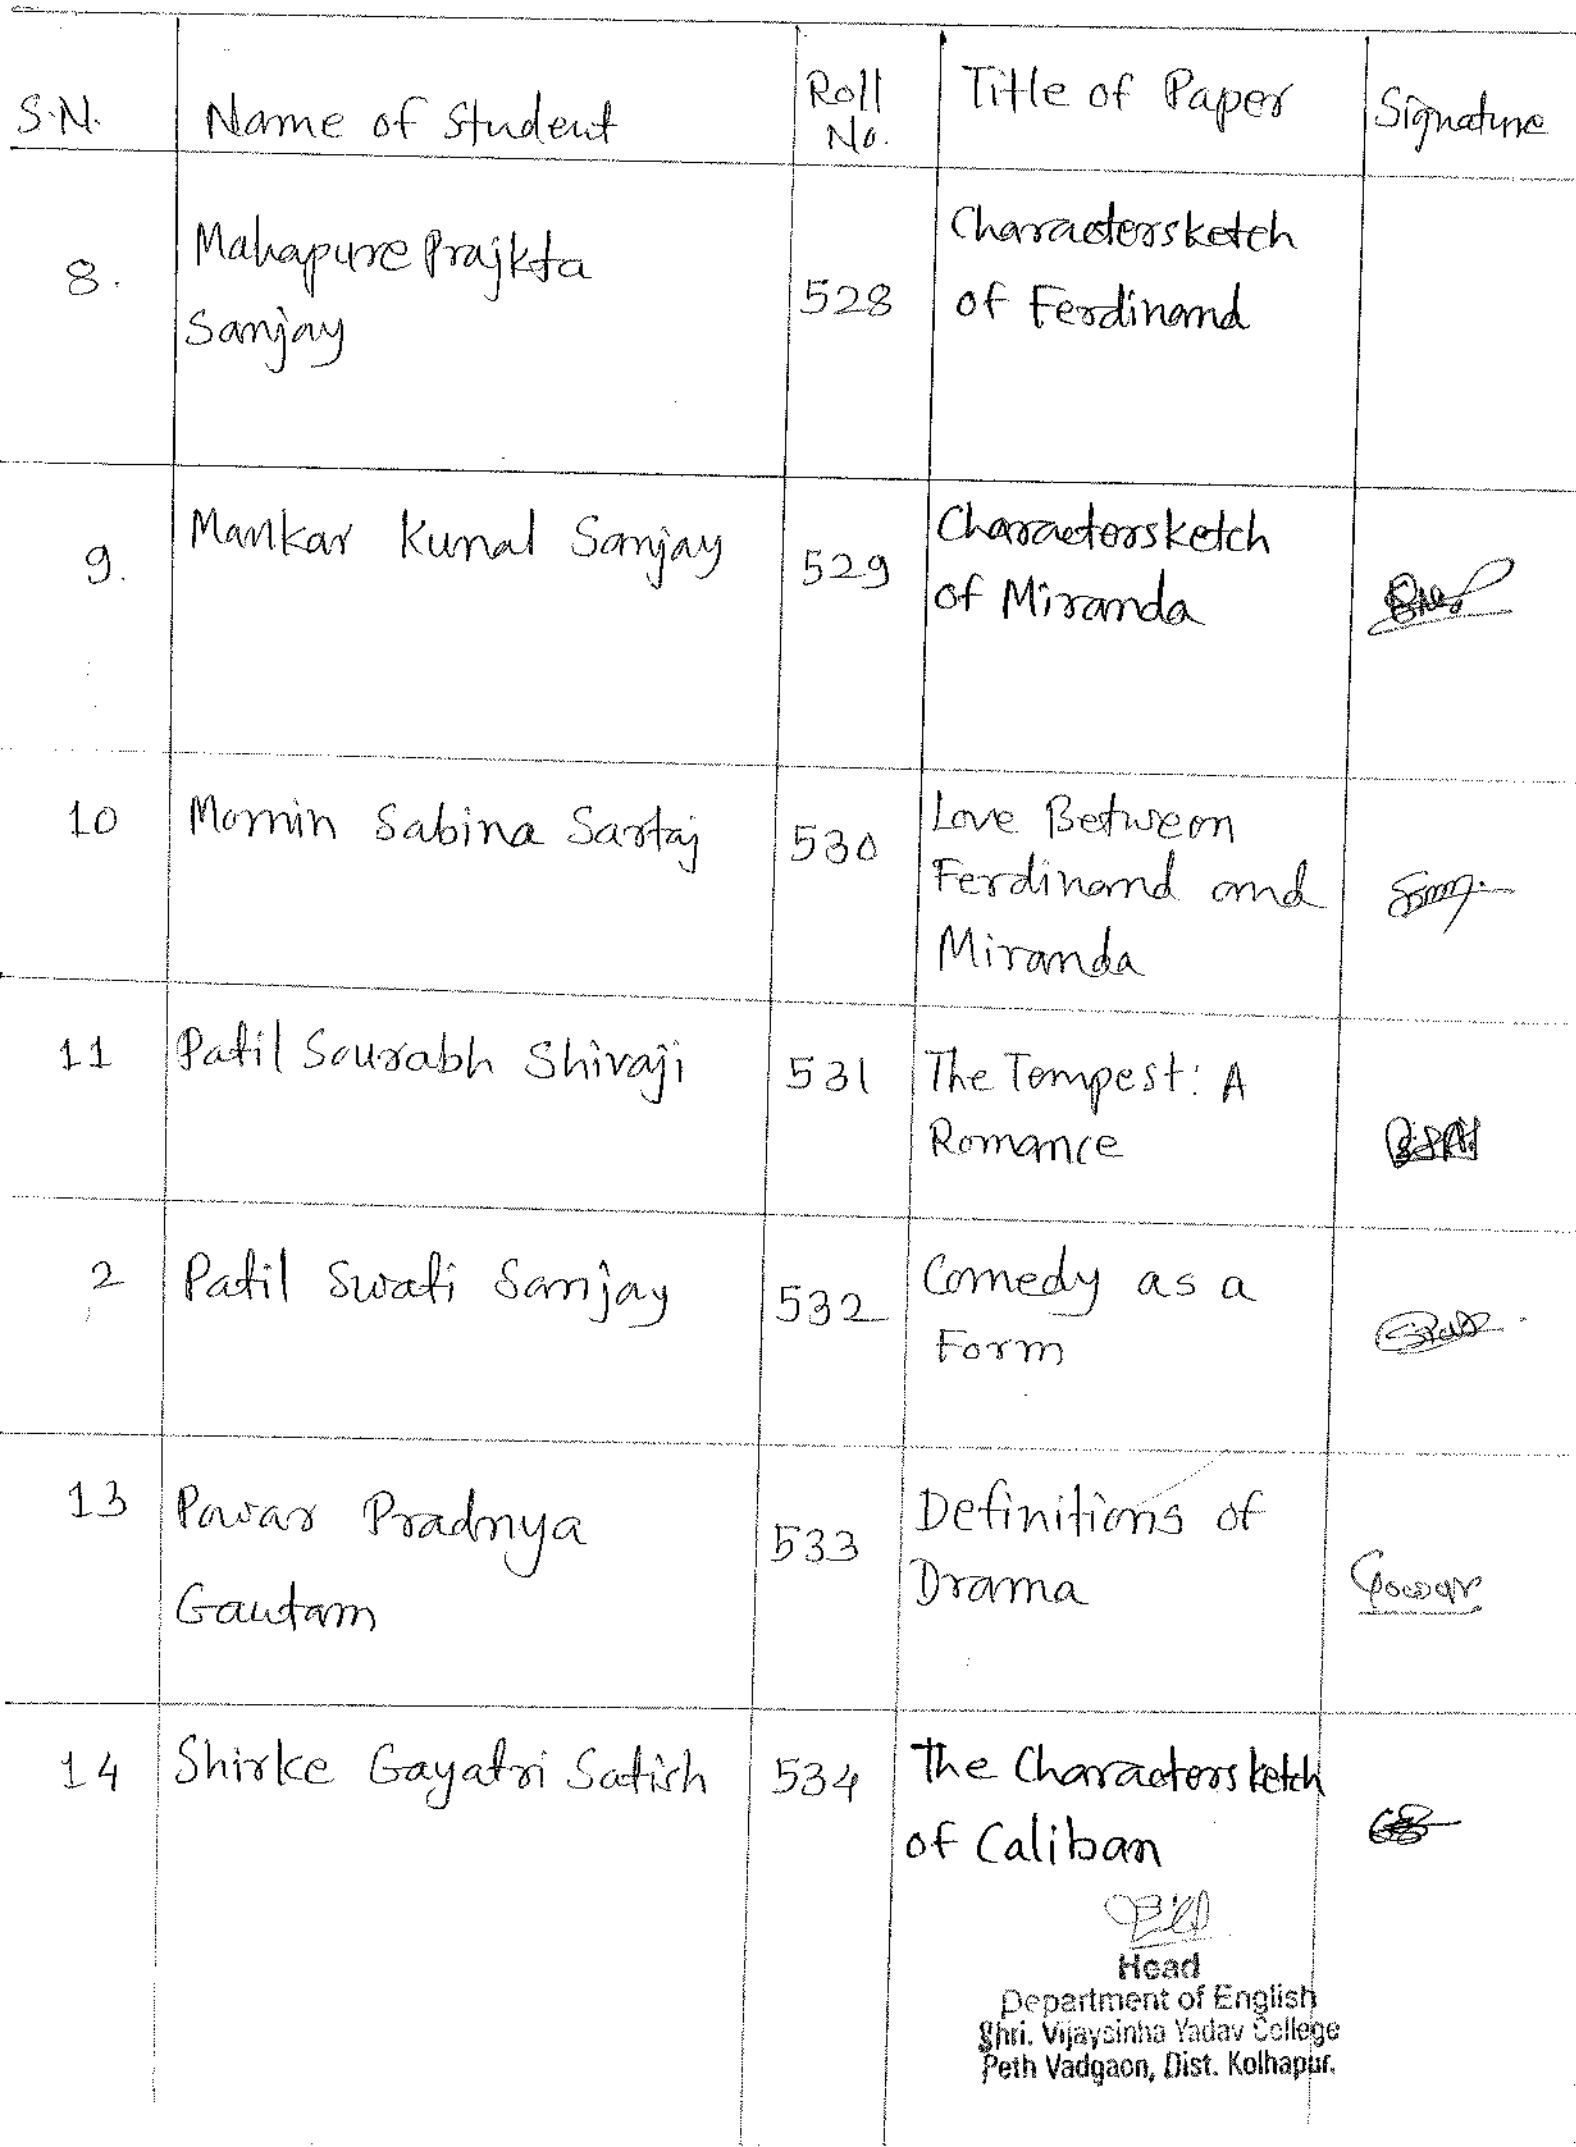 S.N. Name of Student Roll No. Title of Paper Signature
8. Mahapure Prajkta Sanjay 528 Charactorsketch of Ferdinand
9. Mankar Kunal Sanjay 529 Charactorsketch of Miranda
10 Momin Sabina Sartaj 530 Love Between Ferdinand and Miranda
11 Patil Sourabh Shivaji 531 The Tempest: A Romance
2 Patil Swati Sanjay 532 Comedy as a Form
13 Pawar Pradnya Gautam 533 Definitions of Drama Powar
14 Shirke Gayatri Satish 534 The Charactorsketch of Caliban
Head
Department of English
Shri. Vijaysinha Yadav College
Peth Vadgaon, Dist. Kolhapur.